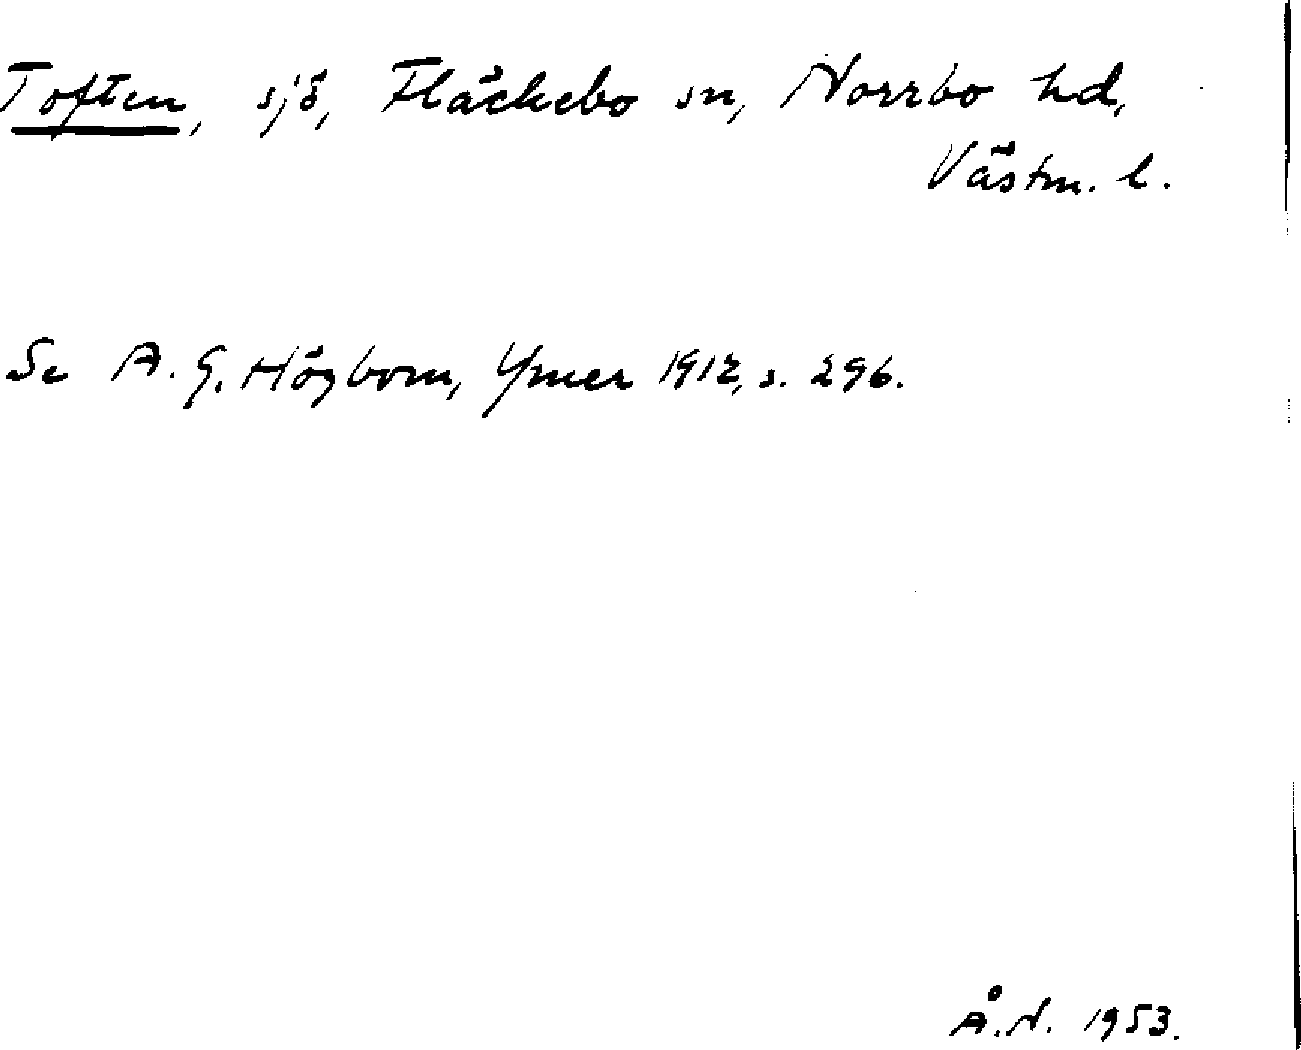 Toften, sjö, Fläckebo sn, Norrbo hd,
Västm. l.
Se A. G. Högbom, Ymer 1912, s. 296.
Å. N. 1953.